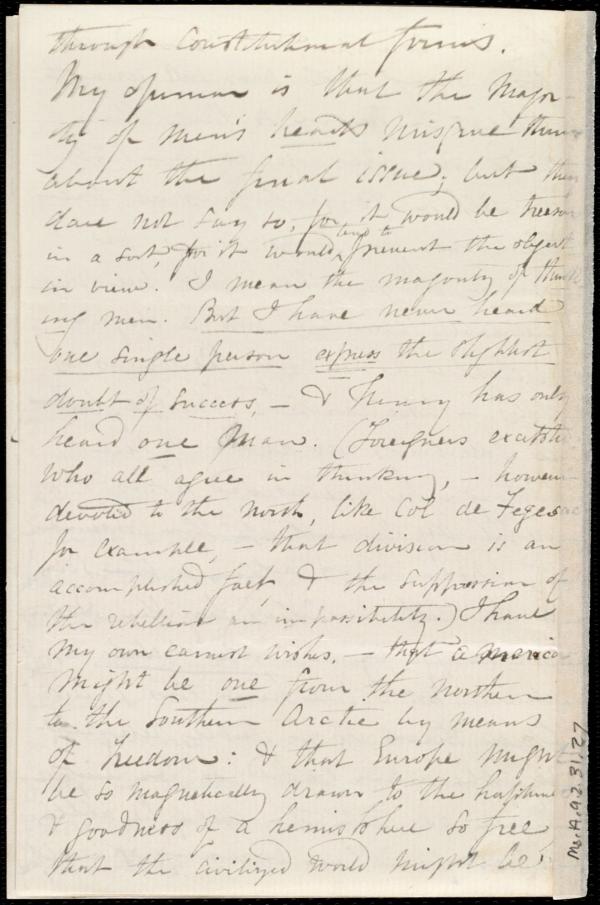 through Constitutional forms.
My opinion is that the Major-
ity of men's hearts misgive them
about the final issue; but they
dare not say so, for it would be treason
in a sort, for it would tend to prevent the object
in view. I mean the majority of think
ing men. But I have never heard
one single person express the slightest
doubt of success, — & Henry has only
heard one man. (Foreigners excepted
who all agree in thinking, — however
devoted to the north, like Col de Fegesac
for example, — that division is an
accomplished fact, & the suppression of
the rebellion an impossibility.) I have
my own earnest wishes, — that America
might be one from the northern
to the Southern Arctic by means
of freedom: & that Europe might
be so magnetically drawn to the happiness
& goodness of a hemisphere so free,
that the civilized world might be
Ms.A.9.2.31.27